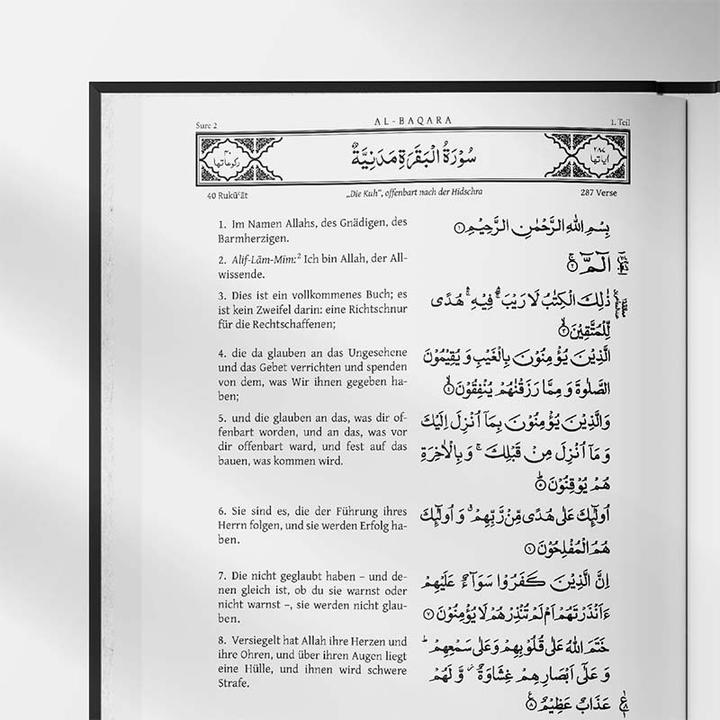 Sure 2 AL-BAQARA 1. Teil
۴۰ رکوعاتها سُوْرَةُ الْبَقَرَةِ مَدَنِيَّةٌ ۲۸۷ اٰیاتها
40 Rukūʿāt „Die Kuh“, offenbart nach der Hidschra 287 Verse
1. Im Namen Allahs, des Gnädigen, des
Barmherzigen.
بِسْمِ اللّٰهِ الرَّحْمٰنِ الرَّحِيْمِ ۝۱
2. Alif-Lām-Mīm:² Ich bin Allah, der All-
wissende.
الٓمّٓ ۝۲
3. Dies ist ein vollkommenes Buch; es
ist kein Zweifel darin: eine Richtschnur
für die Rechtschaffenen;
ذٰلِكَ الْكِتٰبُ لَا رَيْبَ ۛ فِيْهِ ۛ هُدًى
لِّلْمُتَّقِيْنَ ۝۳
4. die da glauben an das Ungesehene
und das Gebet verrichten und spenden
von dem, was Wir ihnen gegeben ha-
ben;
الَّذِيْنَ يُؤْمِنُوْنَ بِالْغَيْبِ وَ يُقِيْمُوْنَ
الصَّلٰوةَ وَ مِمَّا رَزَقْنٰهُمْ يُنْفِقُوْنَ ۝۴
5. und die glauben an das, was dir of-
fenbart worden, und an das, was vor
dir offenbart ward, und fest auf das
bauen, was kommen wird.
وَالَّذِيْنَ يُؤْمِنُوْنَ بِمَاۤ اُنْزِلَ اِلَيْكَ
وَ مَاۤ اُنْزِلَ مِنْ قَبْلِكَ ۚ وَ بِالْاٰخِرَةِ
هُمْ يُوْقِنُوْنَ ۝۵
6. Sie sind es, die der Führung ihres
Herrn folgen, und sie werden Erfolg ha-
ben.
اُولٰٓئِكَ عَلٰى هُدًى مِّنْ رَّبِّهِمْ ۙ وَ اُولٰٓئِكَ
هُمُ الْمُفْلِحُوْنَ ۝۶
7. Die nicht geglaubt haben – und de-
nen gleich ist, ob du sie warnst oder
nicht warnst –, sie werden nicht glau-
ben.
اِنَّ الَّذِيْنَ كَفَرُوْا سَوَآءٌ عَلَيْهِمْ
ءَاَنْذَرْتَهُمْ اَمْ لَمْ تُنْذِرْهُمْ لَا يُؤْمِنُوْنَ ۝۷
8. Versiegelt hat Allah ihre Herzen und
ihre Ohren, und über ihren Augen liegt
eine Hülle, und ihnen wird schwere
Strafe.
خَتَمَ اللّٰهُ عَلٰى قُلُوْبِهِمْ وَ عَلٰى سَمْعِهِمْ ؕ
وَ عَلٰۤى اَبْصَارِهِمْ غِشَاوَةٌ ۫ وَّ لَهُمْ
عَذَابٌ عَظِيْمٌ ۝۸